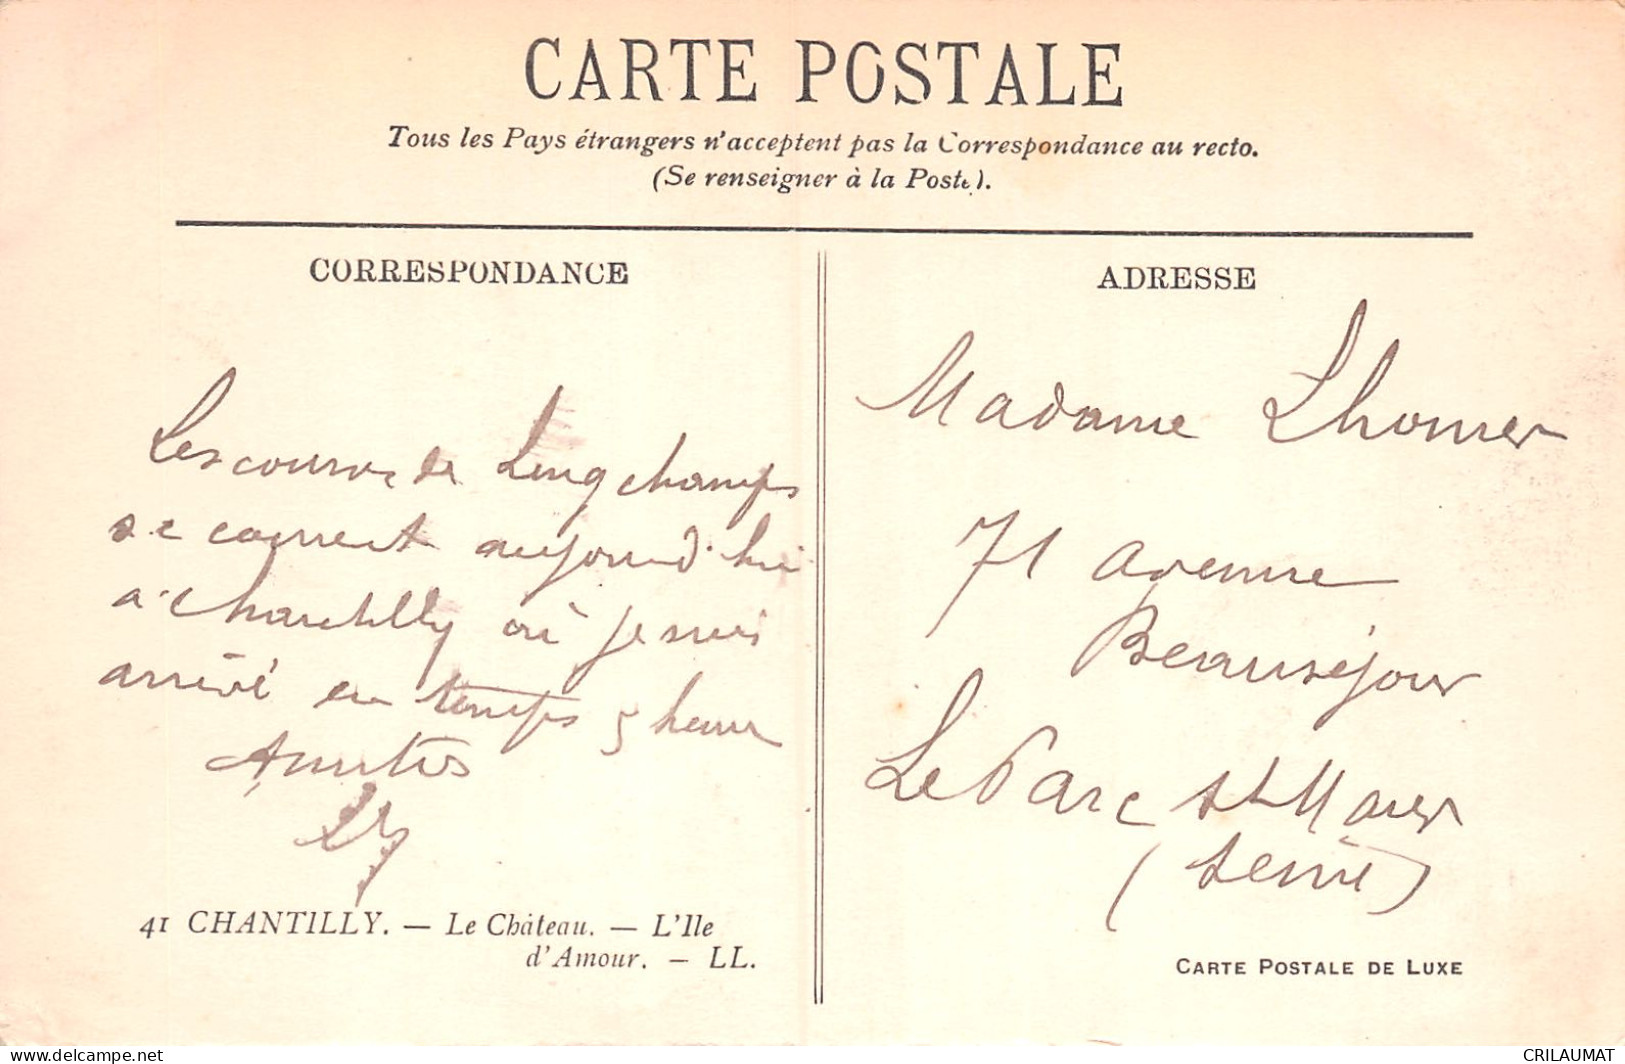 CARTE POSTALE
Tous les Pays étrangers n'acceptent pas la Correspondance au recto.
(Se renseigner à la Poste).
CORRESPONDANCE
Les courses de Longchamps
se courrent aujourd'hui
a Chantilly où je suis
arrivé en temps 5 heure
Amitiés
41 CHANTILLY. — Le Château. — L'Ile
d'Amour. — LL.
ADRESSE
Madame Lhomer
71 avenue
Beauséjour
Le Parc St Maur
(Seine)
CARTE POSTALE DE LUXE
delcampe.net
CRILAUMAT